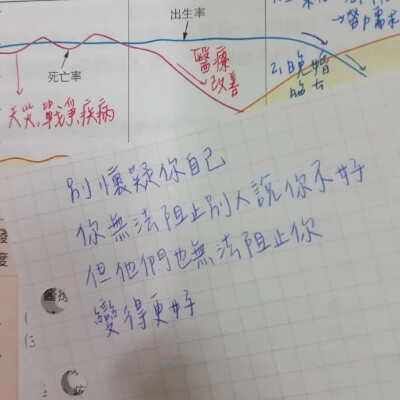 出生率
→勞力需求
死亡率
醫療
改善
2.晚婚
天災,戰爭,疾病
別懷疑你自己
你無法阻止別人說你不好
但他們也無法阻止你
變得更好
度